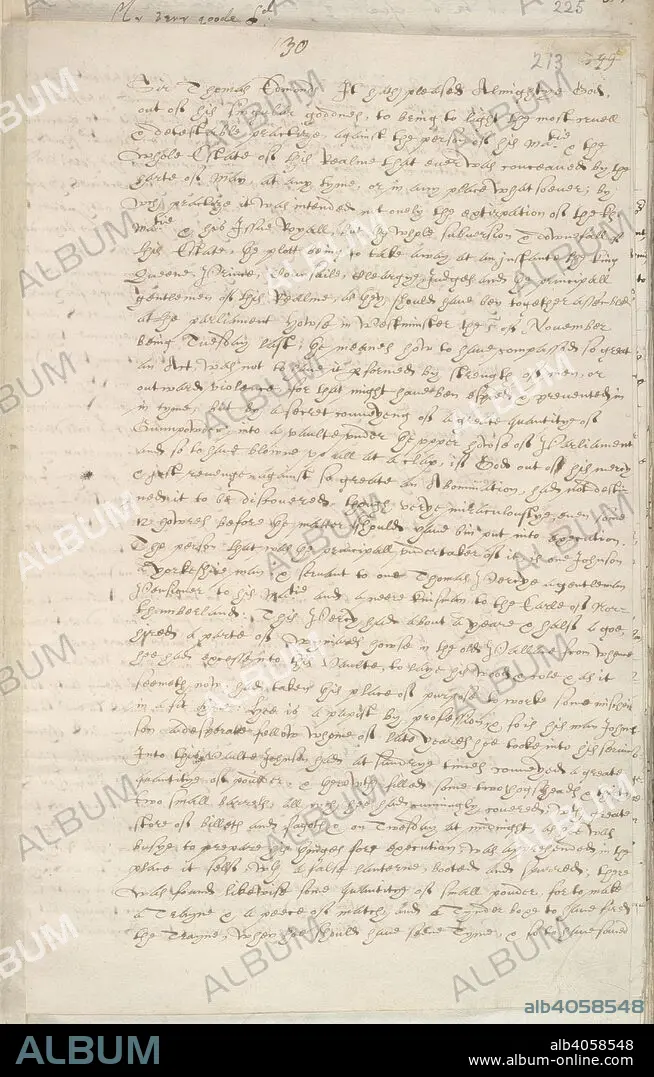 225
30
213
Sir Thomas Edmonds It hath pleased Almightye God,
out of his singular goodnes, to bring to light the most cruell
& detestable practize, against the person of his Matie & the
whole Estate of this Realme that ever was conceaved by the
harte of Man, at any tyme, or in any place whatsoever; by
wch practize it was intended not onely the extirpation of the
Matie & his Issue Royall, but the whole subversion & downefall of
this Estate, the plott being to take away at an instant the King
Queene, Prince, Counsaile, Cleargie, Judges and the principall
gentlemen of this Realme, as they should have ben together assembled
at the parliament howse in Westminster the 5 of November
being Tuesday last; the meanes how to have compassed so great
an Act, was not to have it pformed by strength of men, or
outward violence, for that might have ben espied & prevented in
in tyme, but by a secret conveying of a greate quantitye of
Gunnpowder into a vaulte under the upper howse of Parliament
and so to have blowne up all at a clap, if God out of his mercy
& just revenge against so great an Abomination, had not desti
ned it to be discovered, though verye miraculouslye, even some
12 howres before the matter should have bin put into execution.
The person that was the principall undertaker of it, is one Johnson
a Yorkeshire man, & servant to one Thomas Percye a gentleman
Pensioner to his Matie and a neere kinsman to the Earle of Nor
thumberland. This Percy had about a yeare & halfe a goe,
hyred a parte of howse in the old Pallace from whence
hee had accesse into this Vaulte, to laye his wood & cole & as it
seemeth now, had taken this place of purpose to worke some mischeif
in a fit tyme. Hee is a papist by profession & so is his man John
son a desperate fellow whome of late yeares hee tooke into his service
Into this Vaulte Johnson had at sundrye times conveyed a great
quantitye of powder, & therewth filled some two hogsheads &
two small barrells all wch hee had cunningly covered wth great
store of billets and fagots & on Tuesday at midnight, as hee was
busye to prepare his thinges for execution was apprehended in the
place it self, wth a false lanterne, booted and spurred, there
was found likewise some quantity of small powder, for to make
a Trayne & a peece of match, and a Tynder boxe to have fired
the Trayne, when hee should have seene Tyme, & so to have saved
ALBUM
alb4058548
ALBUM
alb4058548
www.album-online.com